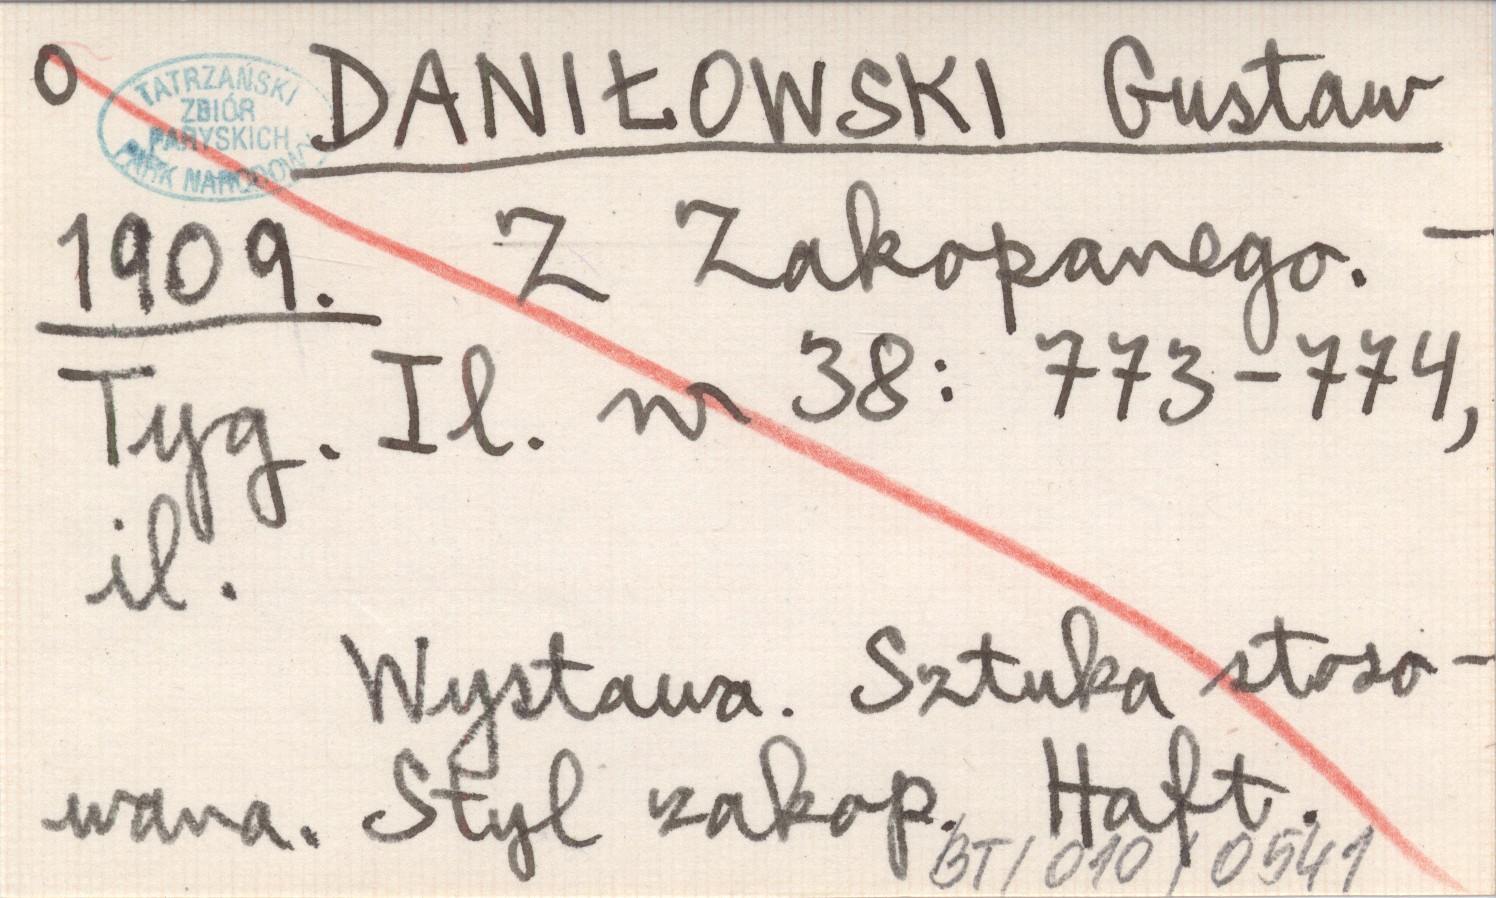 O
TATRZAŃSKI
ZBIÓR
PARYSKICH
PARK NARODOWY
DANIŁOWSKI Gustaw
1909. Z Zakopanego. –
Tyg. Il. nr 38: 773–774,
il.
Wystawa. Sztuka stoso-
wana. Styl zakop. Haft.
BT/010/0541